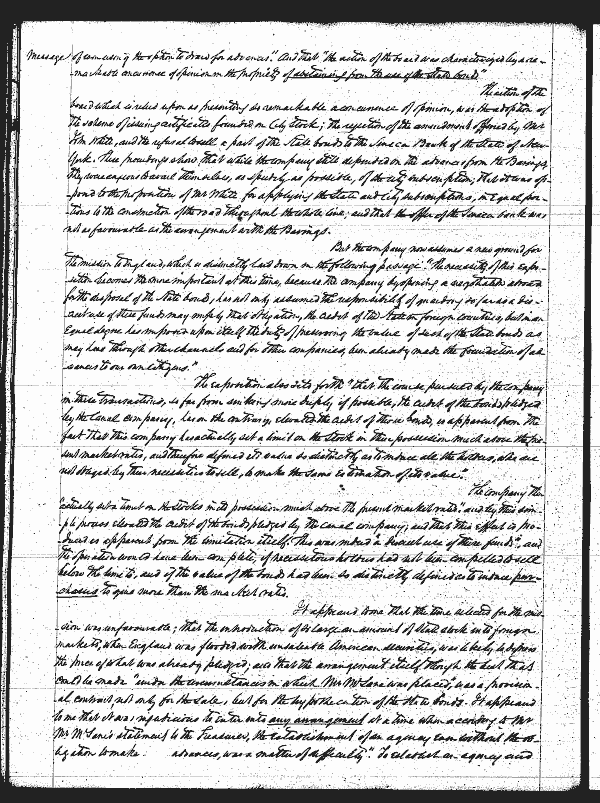 Message) of exercising the option to draw for advances." And that "the action of the board was characterized by a re-
-markable concurrence of opinion on the propriety of abstaining from the use of the State bonds."
The action of the
board which is relied upon as presenting so remarkable a concurrence of opinion, was the adoption of
the scheme of issuing certificates founded on City Stock; the rejection of the amendment offered by Mr
John White, and the refusal to sell a part of the State bonds to the Seneca Bank of the State of New
York. These proceedings show, that while the company still depended on the advances from the Barings,
they were anxious to avail themselves, as speedily as possible, of the city subscription; that it was op-
posed to the proposition of Mr White for applying the State and City subscriptions, in equal por-
tions to the construction of the road throughout the whole line; and that the offer of the Seneca bank was
not as favourable as the arrangement with the Barings.
But the company now assumes a new ground for
the mission to England, which is distinctly laid down in the following passage. "The necessity of this expo-
sition becomes the more important at this time, because the company by opening a negotiation abroad
for the disposal of the State bonds, has not only assumed the responsibility of guarding so far as a dis-
creet use of these funds may imply that obligation, the credit of the State in foreign countries, but in an
equal degree has imposed upon itself the duty of preserving the value of such of the State bonds as
may have through other channels and for other companies, been already made the foundation of ad-
vances to our own citizens."
The exposition also sets forth "that the course pursued by the company
in these transactions, so far from sinking more deeply, if possible, the credit of the bonds pledged
by the Canal company, has on the contrary, elevated the credit of those bonds, is apparent from the
fact that this company has actually set a limit on the Stock in their possession much above the pre-
sent market rates, and therefore defined its value so distinctly as to induce all the holders, who are
not obliged by their necessities to sell, to make the same estimation of its value."
The company then
"actually set a limit on the stocks in its possession much above the present market rates," and by this sim-
ple process elevated the credit of the bonds pledged by the canal company; and that this effect is pro-
duced is apparent from the limitation itself. This was indeed a "discreet use of these funds", and
the operation would have been complete, if necessitous holders had not been compelled to sell
below the limits, and if the value of the bonds had been so distinctly defined as to induce pur-
chasers to give more than the market rates.
It appeared to me that the time selected for the mis-
sion was unfavourable; that the introduction of so large an amount of State stock into foreign
markets, when England was flooded with unsaleable American securities, was likely to depress
the price of what was already pledged; and that the arrangement itself though the best that
could be made "under the circumstances in which Mr McLane was placed," was a provision-
al contract not only for the sale, but for the hypothecation of the State bonds. It appeared
to me that it was injudicious to enter into any arrangement at a time when according to Mr
Mr McLane's statement to the Treasurer, the establishment of an agency even without the ob-
ligation to make advances, was a matter of difficulty". To establish an agency and